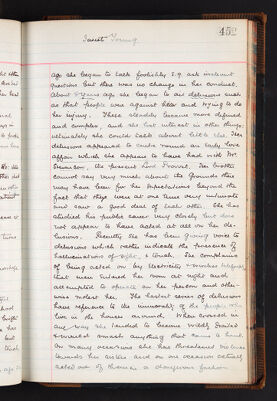 452
Janet Young
ago she began to talk foolishly e.g. ask irrelevant
questions but there was no change in her conduct.
About 5 years ago she began to air delusions such
as that people were against her and trying to do
her injury. These steadily became more defined
and complex, and she lost interest in other things.
Ultimately she could talk about little else. Her
delusions appeared to centre round an early love
affair which she appears to have had with Mr
the present Lord Provost. Her brother
cannot say very much about the grounds there
may have been for her expectations beyond the
fact that they were at one time very intimate
and saw a good deal of each other. She has
studied his public career very closely but does
not appear to have acted at all on her de-
lusions. Recently she has been giving voice to
delusions which rather indicate the presence of
hallucinations of sight & touch. She complains
of being acted on by electricity
that men entered her room at night and
attempted to operate on her person and other-
wise molest her. The latest series of delusions
have reference to the immorality of the people who
live in the houses around. When crossed in
any way she tended to become wildly excited
smash anything that came to hand.
On many occasions she has threatened violence
towards her sister and on one occasion actually
in a dangerous fashion.